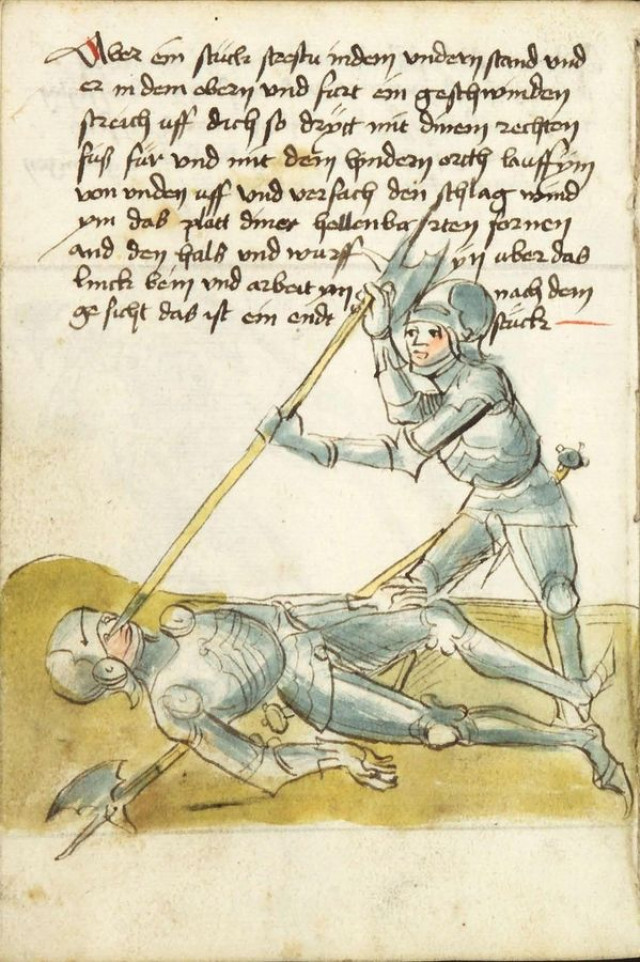 Aber ein stuck stestu in dem undern stand und
er in dem obern und furt ein geschwinden
streich uff dich so dryt mit dinem rechten
fuß für und mit dem hindern orth lauff ym
von unden uff und verfach den schlag wind
ym das platt diner hellenbarten fornen
and den hals und wurff yn uber das
linck bein und arbeit ym nach dem
gesicht das ist ein endt stuck